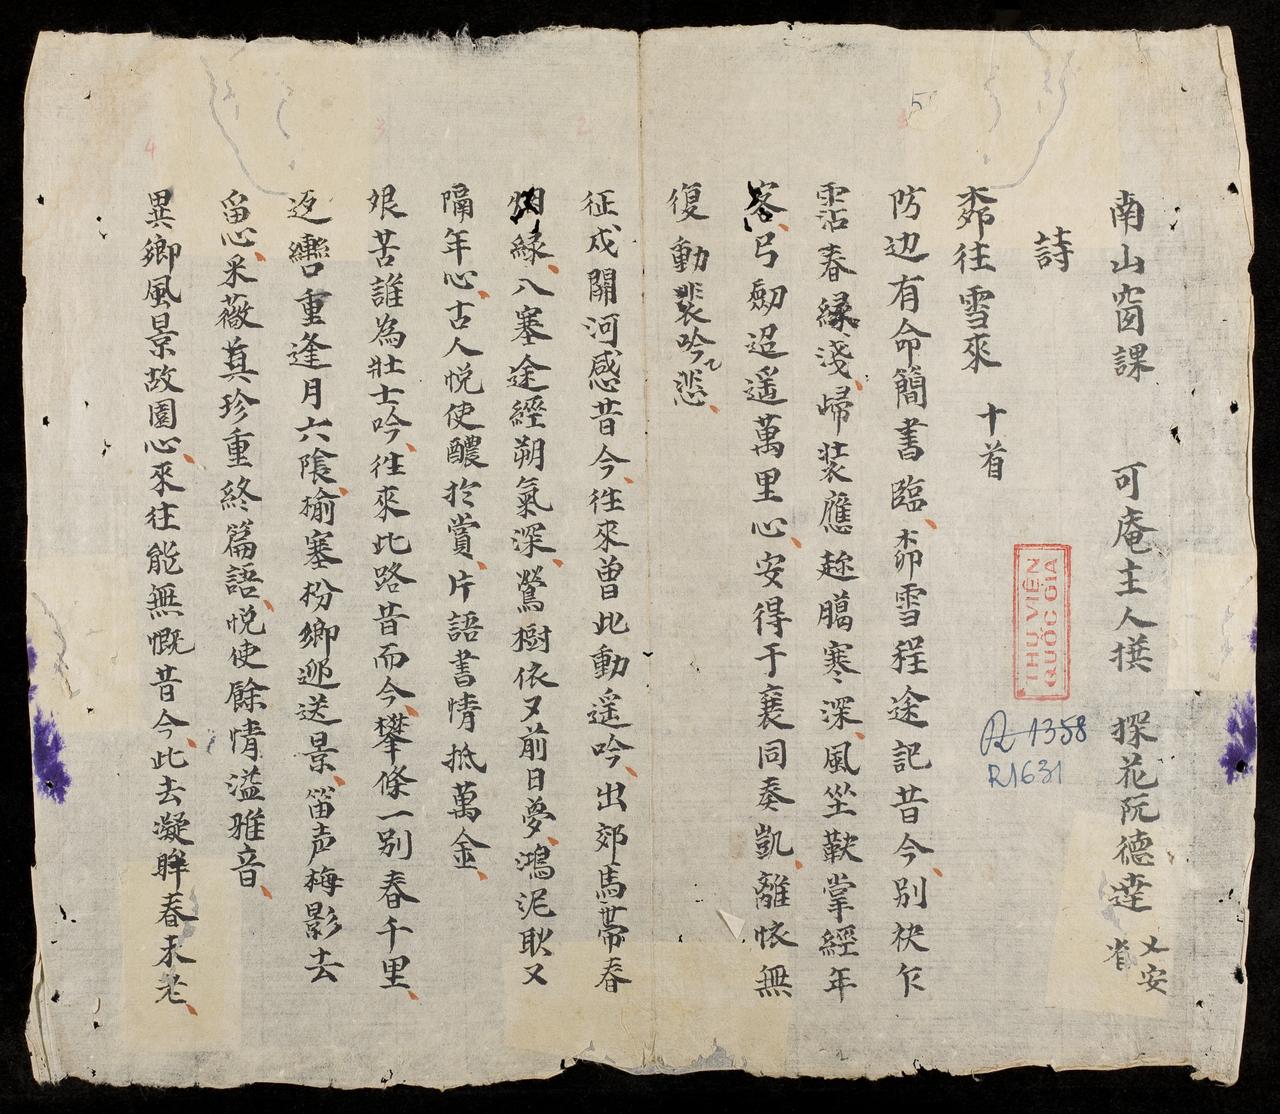 南山窗課 可庵主人撰 探花阮德達 乂安省
詩
桺往雪來 十首
防边有命簡書臨桺雪程途記昔今別袂乍
霑春緣淺歸装應趂臈寒深風坐歎掌經年
客弓劒迢遥萬里心安得于襄同奏凱離帷無
復動裴吟悲
征戍關河感昔今往來曾此動遥吟出郊馬帶春
烟綠八塞途經朔氣深鶯樹依又前日夢鴻泥耿又
隔年心古人悅使醲扵賞片語書情抵萬金
艰苦誰為壯士吟往來此路昔而今攀條一別春千里
返轡重逢月六陰榆塞枌鄉迎送景笛声梅影去
畄心采薇莫珍重終篇語悅使餘情溢雅音
異鄉風景故園心來往能無慨昔今此去凝眸春未老
THƯ VIỆN
QUỐC GIA
R 1358
R1631
5
1
2
3
4